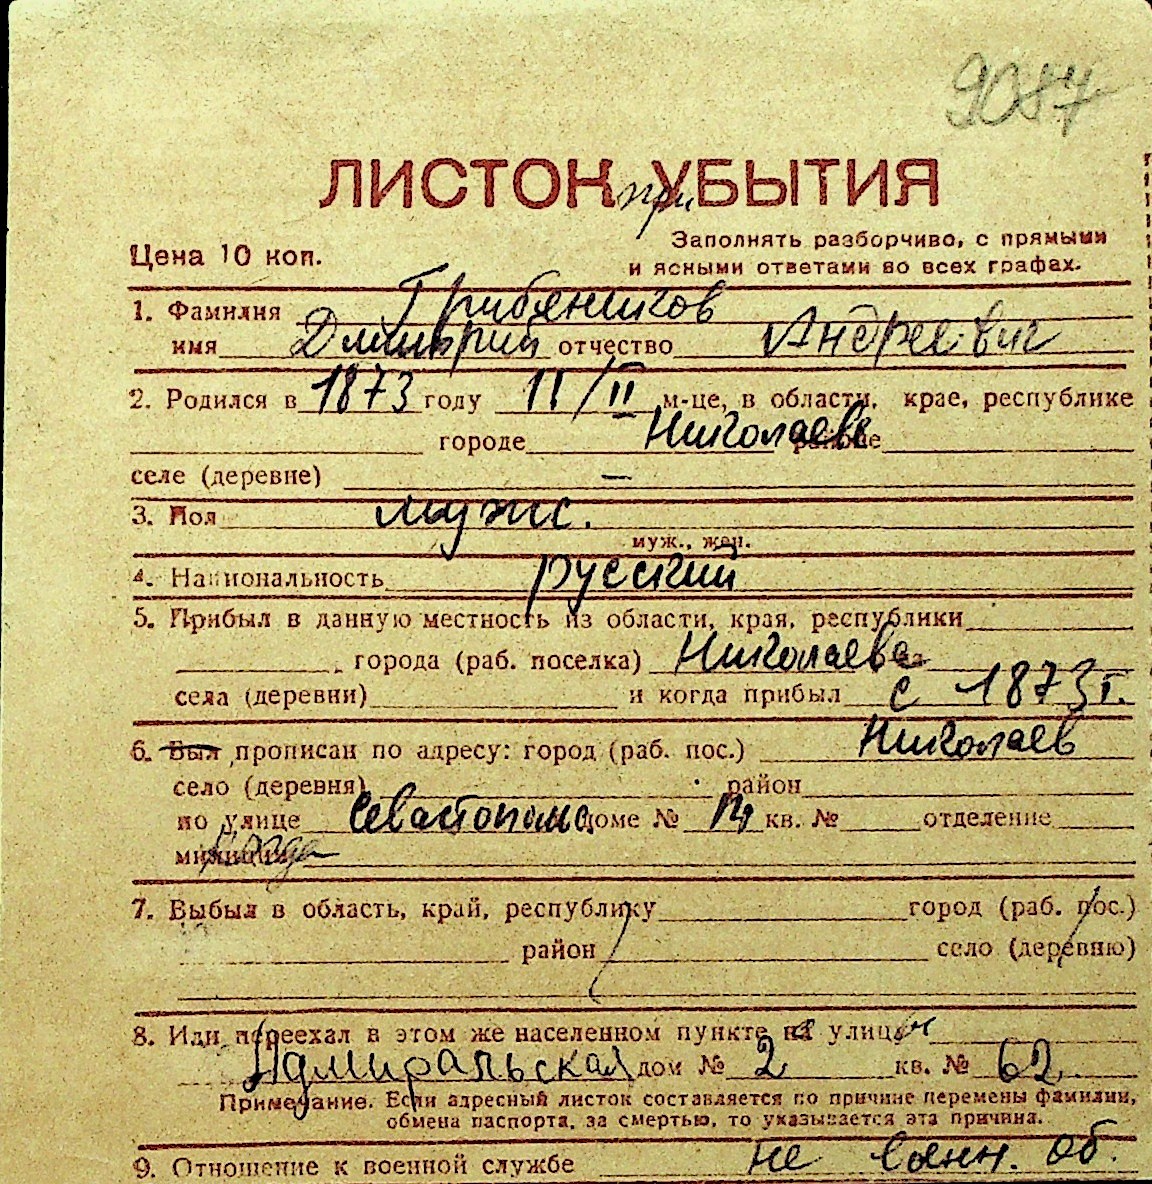 9087
ЛИСТОК УБЫТИЯ
при
Заполнять разборчиво, с прямыми
Цена 10 коп.
и ясными ответами во всех графах.
1. Фамилия Грибеников
имя Дмитрий отчество Андреевич
2. Родился в 1873 году 11/II м-це, в области, крае, республике
городе Николаеве районе
селе (деревне) —
3. Пол мужс.
муж., жен.
4. Национальность русский
5. Прибыл в данную местность из области, края, республики
города (раб. поселка) Николаева
села (деревни) и когда прибыл с 1873 г.
6. Был прописан по адресу: город (раб. пос.) Николаев
село (деревня) район
по улице доме № 14 кв. № отделение
милиции
7. Выбыл в область, край, республику город (раб. пос.)
район село (деревню)
8. Или переехал в этом же населенном пункте на улицу
Адмиральская дом № 2 кв. № 62
Примечание. Если адресный листок составляется по причине перемены фамилии,
обмена паспорта, за смертью, то указывается эта причина.
9. Отношение к военной службе не воен. об.